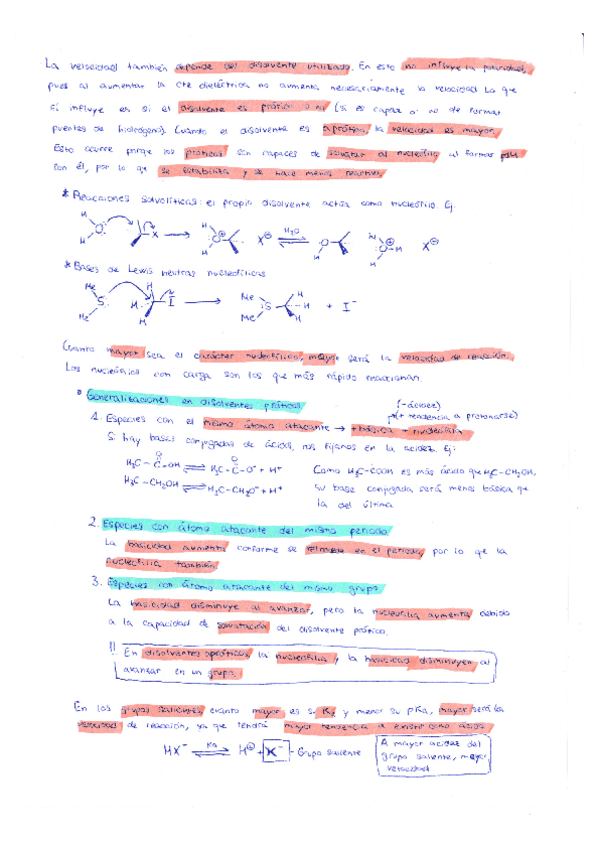 La velocidad también depende del disolvente utilizado. En esto no influye la polaridad,
pues al aumentar la cte dieléctrica no aumenta necesariamente la velocidad. Lo que
sí influye es si el disolvente es prótico o no (si es capaz o no de formar
puentes de hidrógeno). Cuando el disolvente es aprótico, la velocidad es mayor.
Esto ocurre porque los próticos son capaces de solvatar al nucleófilo al formar pdH
con él, por lo que se estabiliza y se hace menos reactivo.
* Reacciones solvolíticas: el propio disolvente actúa como nucleófilo. Ej:
H H O X → H O⊕ H X⊖ H2O ⇌ O H H O⊕ H H X⊖
* Bases de Lewis neutras nucleofílicas
Me S Me H H H I → Me S Me H H H + I⁻
Cuanto mayor sea el carácter nucleofílico, mayor será la velocidad de reacción.
Los nucleófilos con carga son los que más rápido reaccionan.
• Generalizaciones en disolventes próticos
(-ácidez)
(+ tendencia a protonarse)
1. Especies con el mismo átomo atacante → + básica + nucleófila
Si hay bases conjugadas de ácidos, nos fijamos en la acidez. Ej:
H3C - C - OH ⇌ H3C - C - O⁻ + H⁺ Como H3C-COOH es más ácido que H3C-CH2OH,
H3C - CH2OH ⇌ H3C - CH2O⁻ + H⁺ su base conjugada será menos básica que
la del última
2. Especies con átomo atacante del mismo periodo
La basicidad aumenta conforme se retrocede en el periodo, por lo que la
nucleofilia también.
3. Especies con átomo atacante del mismo grupo
La basicidad disminuye al avanzar, pero la nucleofilia aumenta debido
a la capacidad de solvatación del disolvente prótico.
!! En disolventes apróticos, la nucleofilia y la basicidad disminuyen al
avanzar en un grupo.
En los grupos salientes, cuanto mayor es su Ka y menor su pKa, mayor será la
velocidad de reacción, ya que tendrá mayor tendencia a existir como ácido.
HX⁻ Ka ⇌ H⊕ + X⁻ - Grupo saliente
A mayor acidez del
grupo saliente, mayor
velocidad